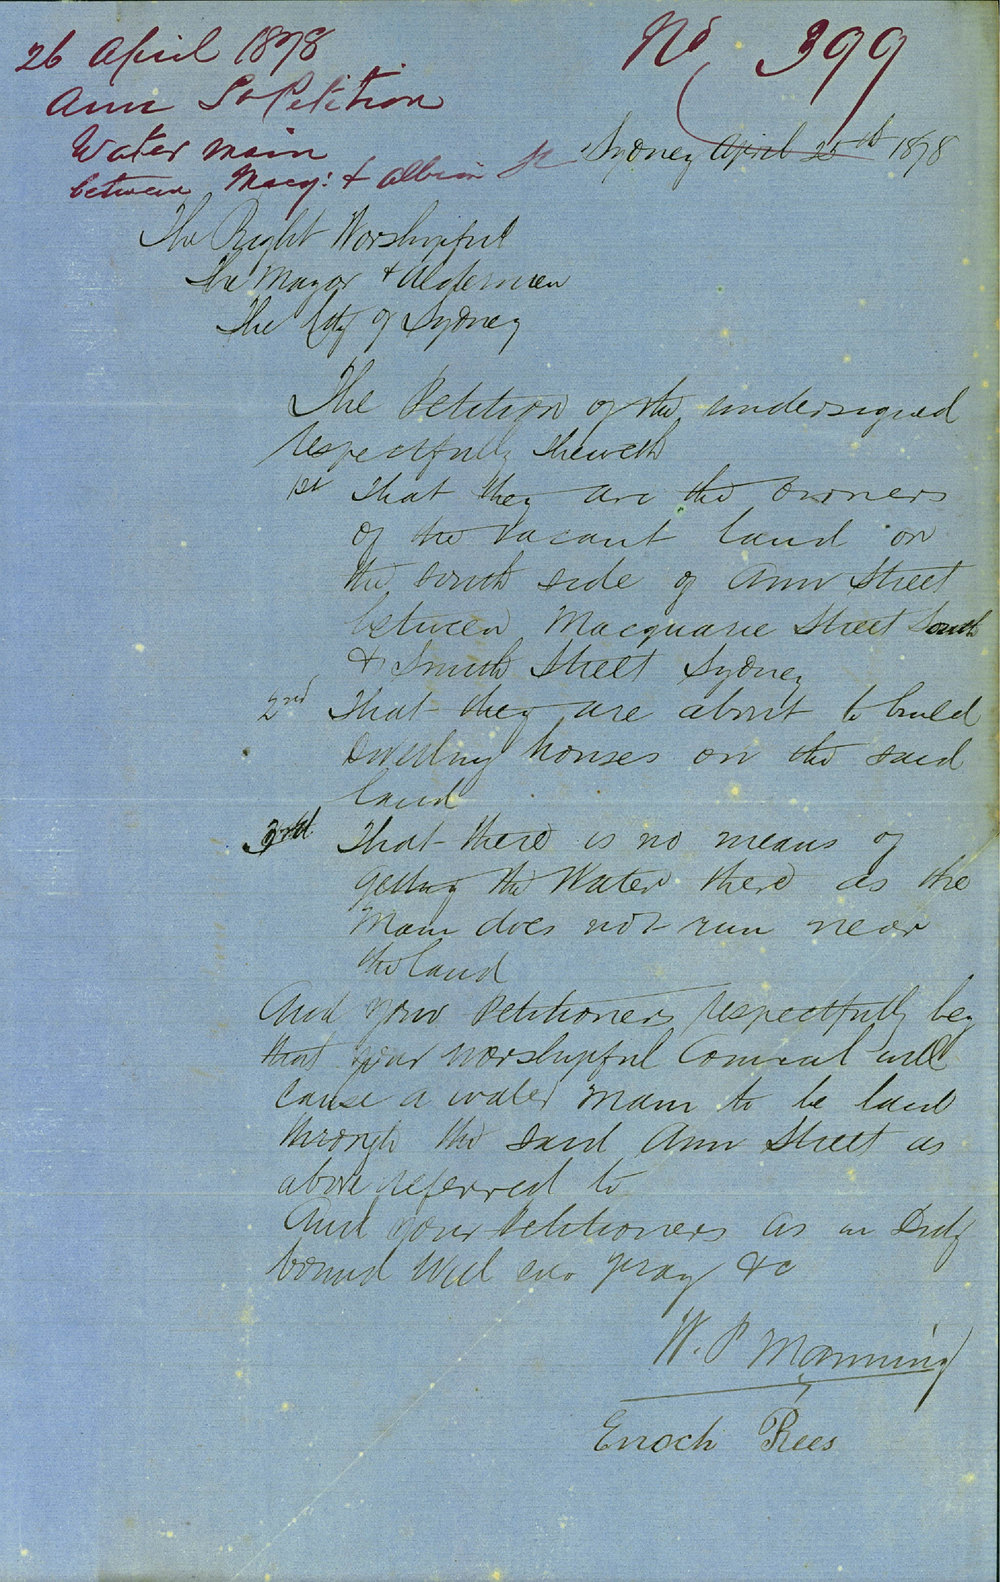 26 April 1878
No 399
Ann St Petition
Water main
between Macq: & Albion St
Sydney April 25th 1878
The Right Worshipful
The Mayor & Aldermen
The City of Sydney
The Petition of the undersigned
respectfully Sheweth
1st That they are the owners
of the vacant land on
the South side of Ann Street
between Macquarie Street South
& Smith Street Sydney
2nd That they are about to build
Dwelling houses on the said
land
3rd That there is no means of
getting the Water there as the
Main does not run near
the land
And your Petitioners respectfully beg
that your worshipful Council will
cause a water main to be laid
through the said Ann Street as
above referred to
And your Petitioners as in Duty
bound Will ever pray &c
W. P Manning
Enoch Rees